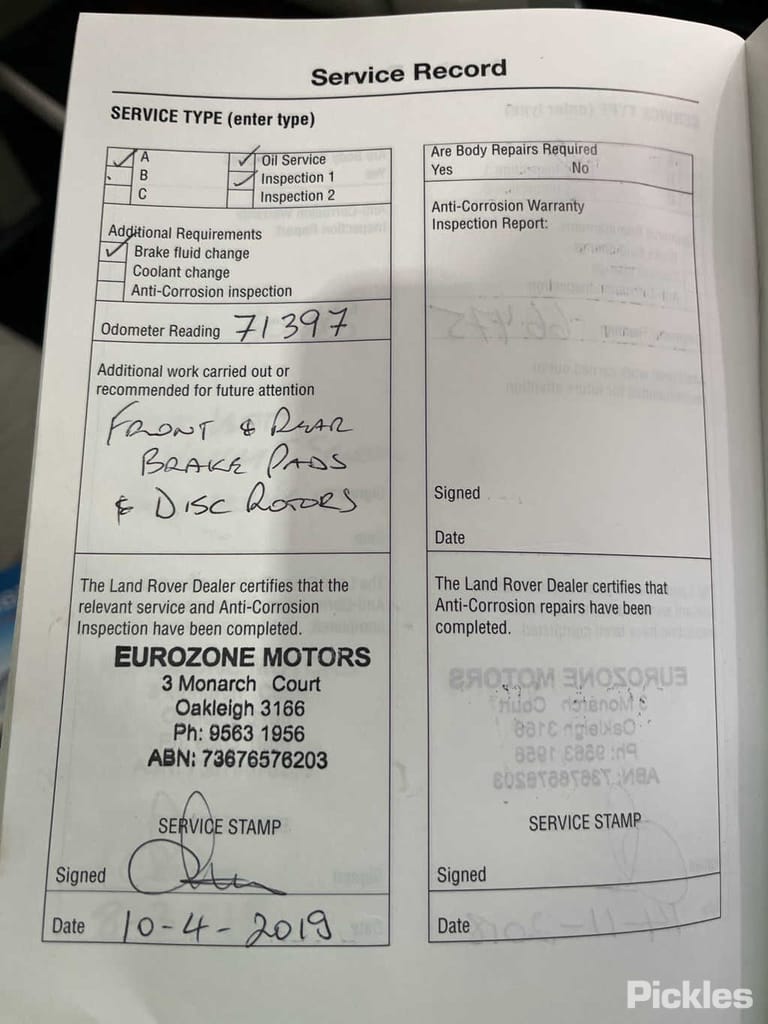 Service Record
SERVICE TYPE (enter type)
A
B
C
Oil Service
Inspection 1
Inspection 2
Additional Requirements
Brake fluid change
Coolant change
Anti-Corrosion inspection
Odometer Reading 71397
Additional work carried out or
recommended for future attention
FRONT & REAR
BRAKE PADS
& DISC ROTORS
The Land Rover Dealer certifies that the
relevant service and Anti-Corrosion
Inspection have been completed.
EUROZONE MOTORS
3 Monarch Court
Oakleigh 3166
Ph: 9563 1956
ABN: 73676576203
SERVICE STAMP
Signed
Date 10-4-2019
Are Body Repairs Required
Yes No
Anti-Corrosion Warranty
Inspection Report:
Signed
Date
The Land Rover Dealer certifies that
Anti-Corrosion repairs have been
completed.
SERVICE STAMP
Signed
Date
Pickles